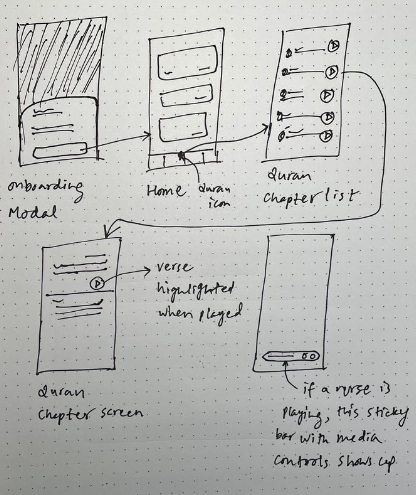 onboarding
Modal
Home
Quran
icon
Quran
Chapter list
verse
highlighted
when played
Quran
Chapter screen
if a verse is
playing, this sticky
bar with media
controls shows up